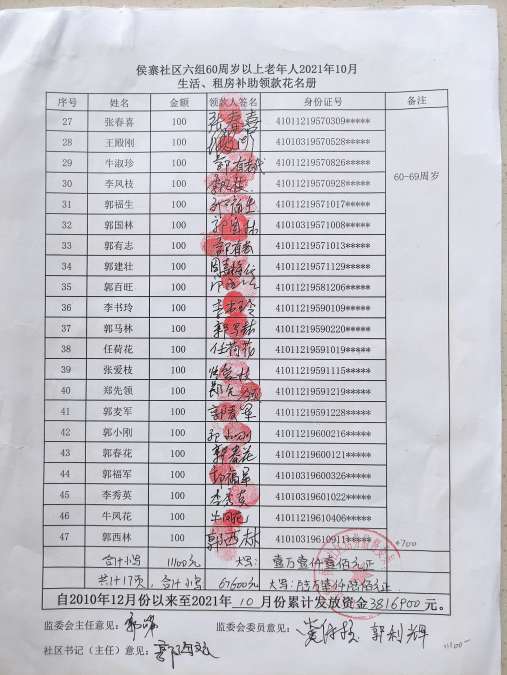 侯寨社区六组60周岁以上老年人2021年10月
生活、租房补助领款花名册
序号 姓名 金额 领款人签名 身份证号 备注
27 张春喜 100 张春喜 41011219570309*****
28 王殿刚 100 41010319570528*****
29 牛淑珍 100 41011219570826***** 60-69周岁
30 李凤枝 100 41011219570928*****
31 郭福生 100 郭福生 41011219571017*****
32 郭国林 100 郭国林 41010319571008*****
33 郭有志 100 郭有志 41011219571013*****
34 郭建壮 100 41011219571129*****
35 郭百旺 100 41011219581206*****
36 李书玲 100 李书玲 41011219590109*****
37 郭马林 100 郭马林 41011219590220*****
38 任荷花 100 任荷花 41011219591019*****
39 张爱枝 100 张爱枝 41011219591115*****
40 郑先领 100 41011219591219*****
41 郭麦军 100 郭麦军 41011219591228*****
42 郭小刚 100 郭小刚 41011219600216*****
43 郭春花 100 郭春花 41011219600121*****
44 郭福军 100 郭福军 41010319600326*****
45 李秀英 100 李秀英 41010319601022*****
46 牛凤花 100 41011219610406*****
47 郭西林 100 郭西林 41010319610911***** 4700
合计小写 11100元 大写：壹万壹仟壹佰元正
共计17页，合计小写 67600元 大写：陆万柒仟陆佰元正
自2010年12月份以来至2021年10月份累计发放资金3816900元。
监委会主任意见： 监委会委员意见： 郭利辉
社区书记（主任）意见： 11100